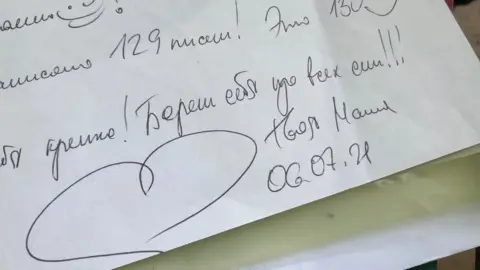 129 писем! Это 130
крепко! Береги себя изо всех сил!!!
Твоя Маша
06.07.21